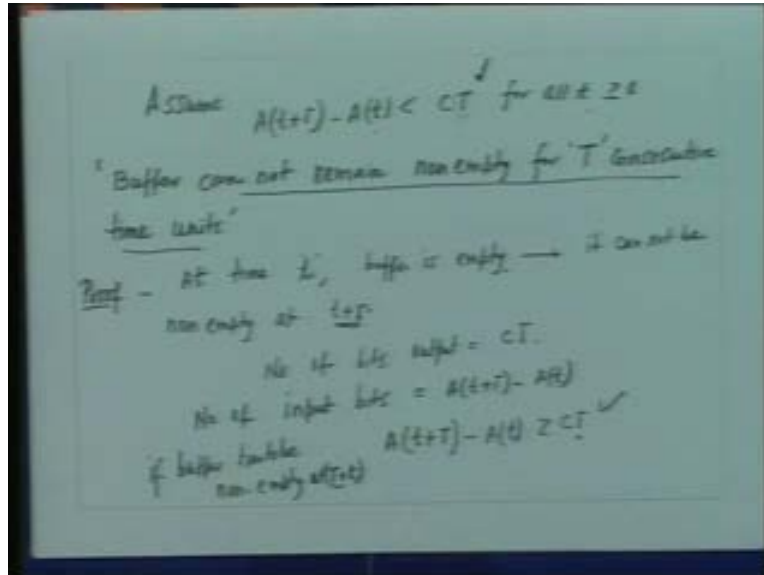 Assume A(t+T) - A(t) < CT ✓ for all t ≥ 0
"Buffer can not remain nonempty for 'T' Consecutive
time units"
Proof - At time t, buffer is empty → it can not be
non empty at t+T.
No of bits output = CT.
No of input bits = A(t+T) - A(t)
if buffer A(t+T) - A(t) ≥ CT ✓
non empty at